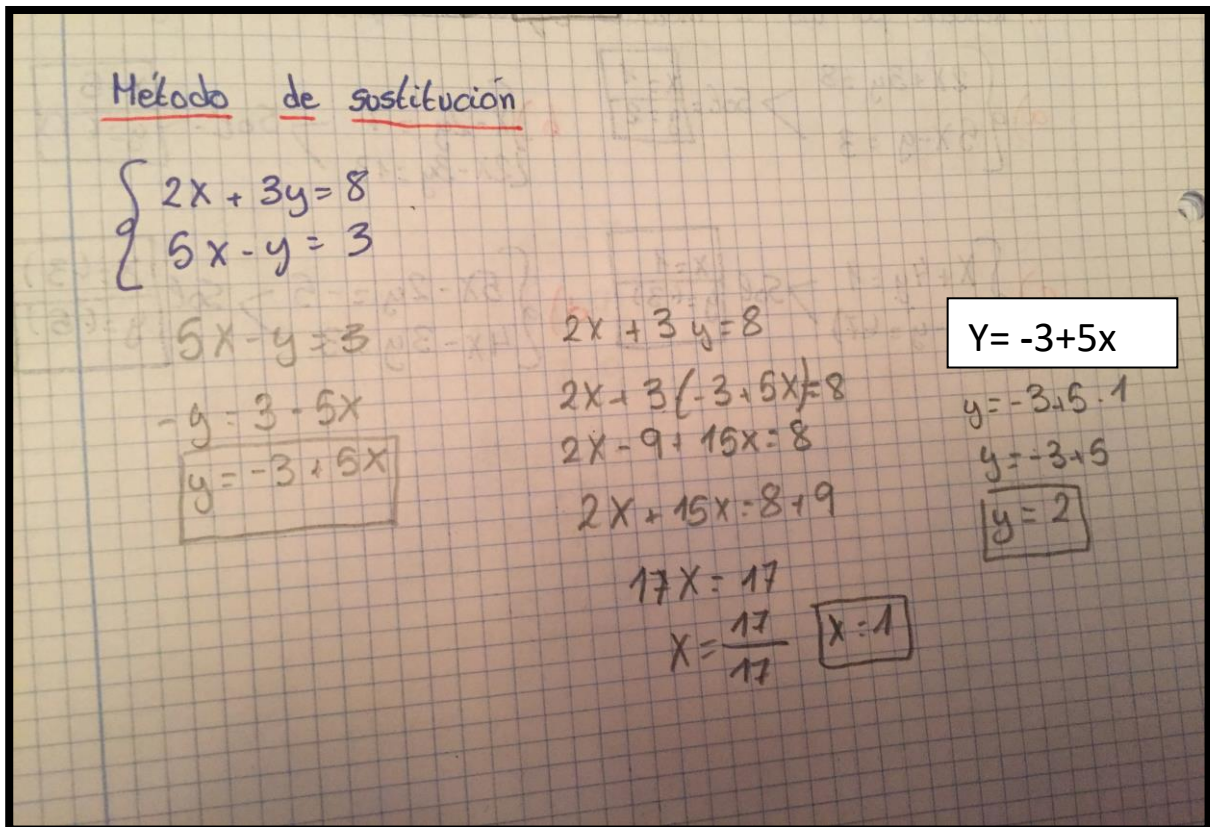 Método de sustitución
2x + 3y = 8
5x - y = 3
5x - y = 3
- y = 3 - 5x
y = -3 + 5x
2x + 3y = 8
2x + 3(-3 + 5x) = 8
2x - 9 + 15x = 8
2x + 15x = 8 + 9
17x = 17
x = 17/17 x = 1
Y= -3+5x
y = -3 + 5 · 1
y = -3 + 5
y = 2